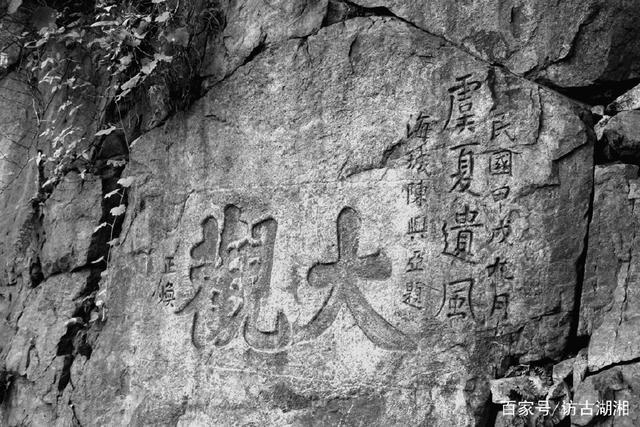 民國甲戌九月
虞夏遺風
海城陳興亞題
大觀
正煥
百家号/访古湖湘